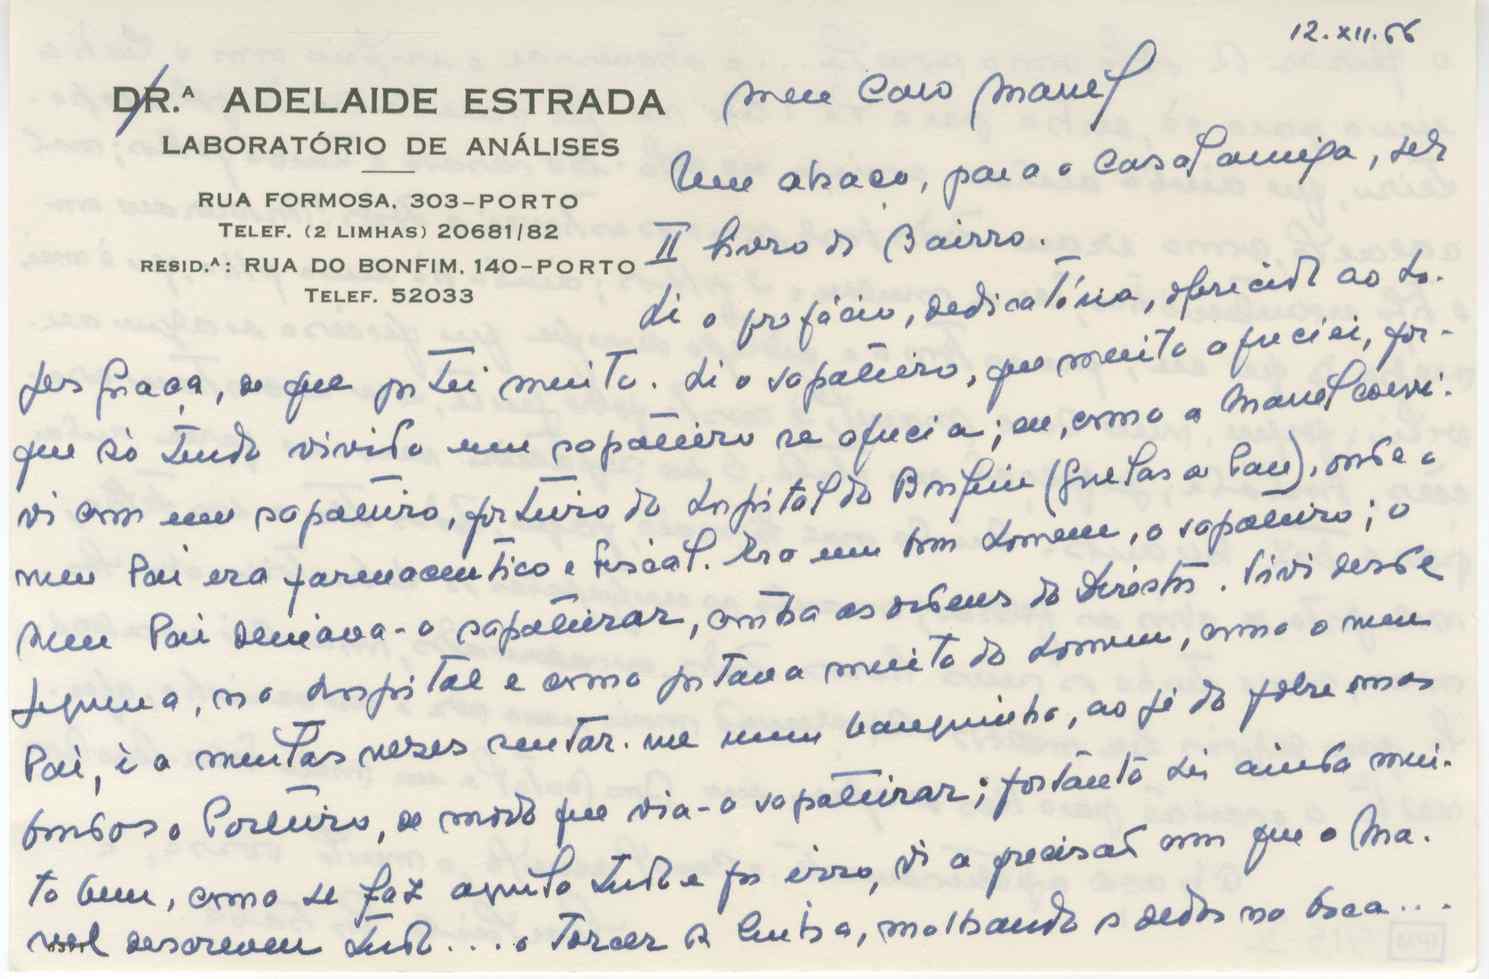 12.XII.66
DR.ª ADELAIDE ESTRADA
LABORATÓRIO DE ANÁLISES
RUA FORMOSA, 303-PORTO
TELEF. (2 LIMHAS) 20681/82
RESID.ª: RUA DO BONFIM, 140-PORTO
TELEF. 52033
Meu Caro Manel
Um abraço, para o Casal amigo, pelo
II livro do Bairro.
Li o prefácio, dedicatória, oferecida ao Lo-
pes Graça, de que gostei muito. Li o sapateiro, que muito apreciei, por-
que só tendo vivido um sapateiro se aprecia; eu, como o Manel convi-
vi com um sapateiro, porteiro do Hospital do Bonfim (Goelas de Pau), onde o
meu Pai era farmaceutico e fiscal. Era um bom homem, o sapateiro; o
meu Pai deixava-o sapateirar, contra as ordens da Direcção. Vivi desde
pequena, no hospital e como gostava muito do homem, como o meu
Pai, ia muitas vezes sentar-me num banquinho, ao pé do pobre mas
bondoso Porteiro, de modo que via-o sapateirar; portanto sei ainda mui-
to bem, como se faz aquilo tudo e por isso, vi a precisão com que o Ma-
nel descreveu tudo.... o torcer a linha, molhando os dedos na boca....